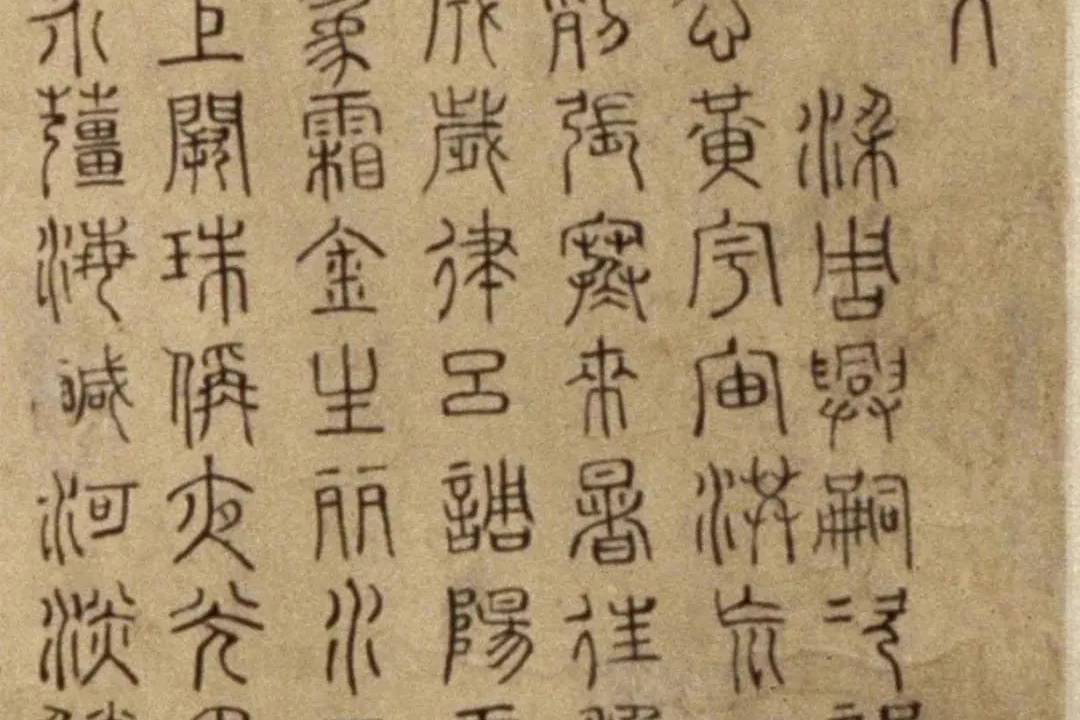 梁周興嗣次
玄黃宇宙洪荒
列張寒來暑往
成歲律呂調陽
為霜金生麗水
巨闕珠稱夜光
芥薑海鹹河淡